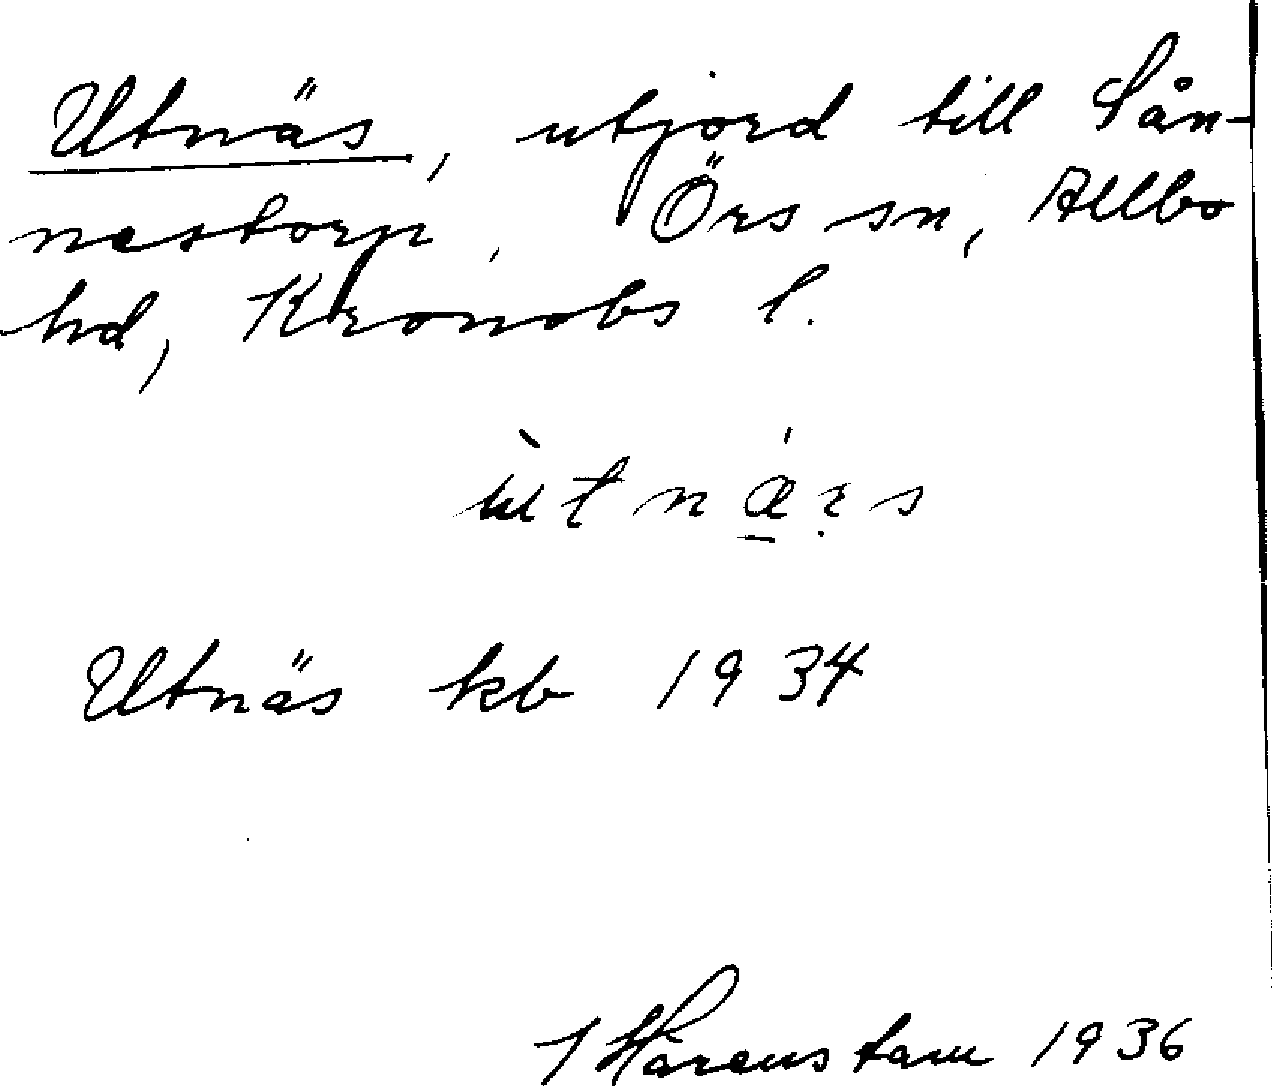 Utnäs, utjord till Sån-
nastorp, Örs sn, Allbo
hd, Kronobs l.
ùtná̱ṛs
Utnäs kb 1934
I Hårenstam 1936